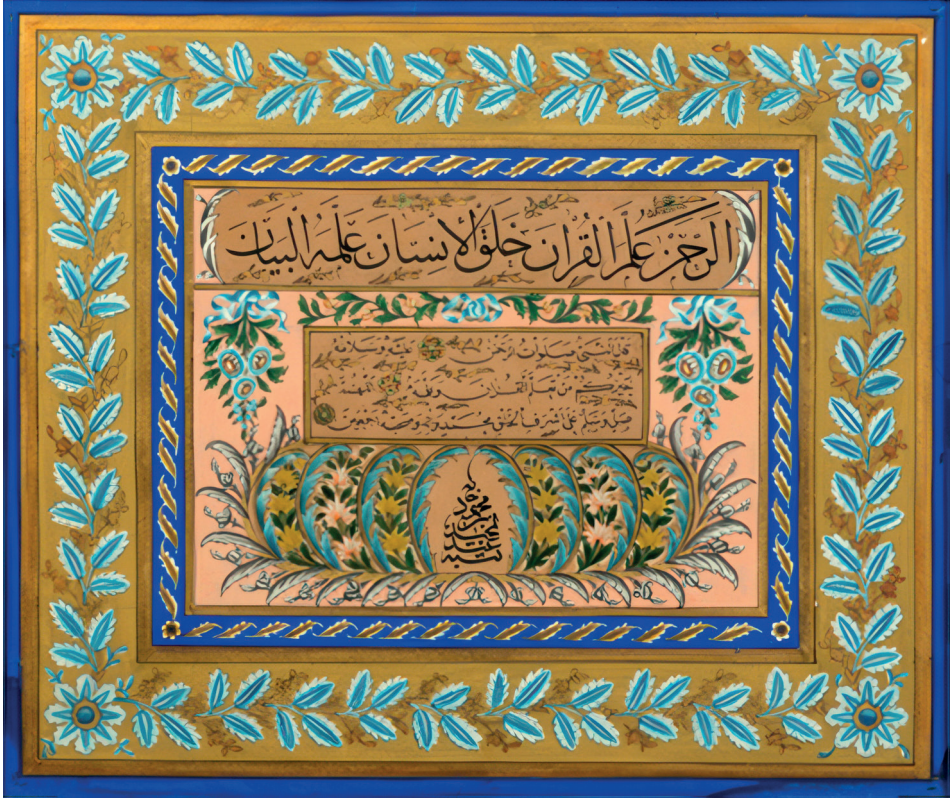 الرحمن علم القرآن خلق الإنسان علمه البيان
قال النبي صلوات الرحمن عليه وسلامه
خيركم من تعلم القرآن وعلمه
صل وسلم على أشرف الخلق محمد وآله وصحبه أجمعين
كتبه